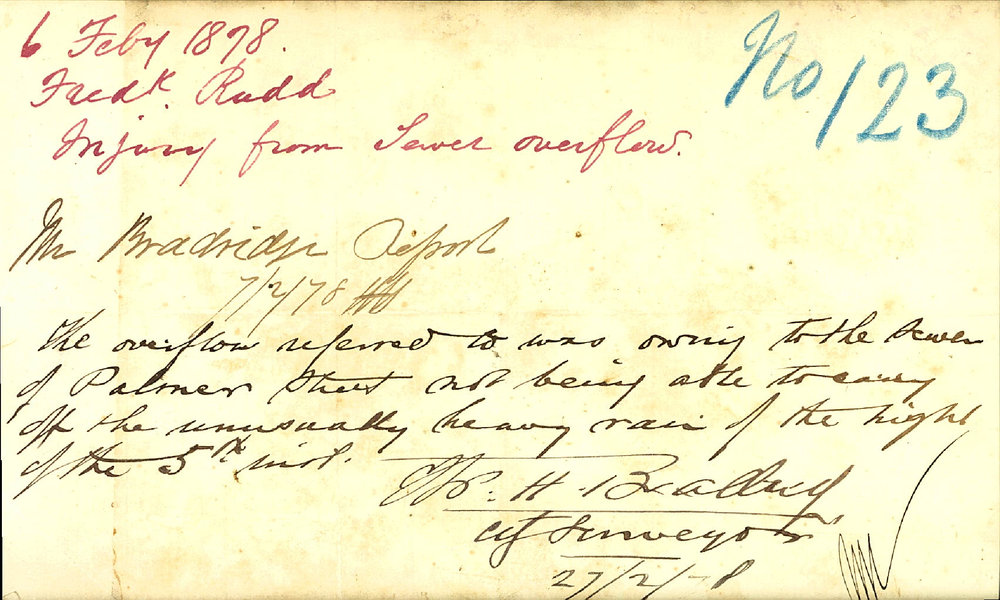 6 Feby 1878.
No 123
Fredk. Rudd
Injury from Sewer overflow.
Mr Bradridge Report
7/2/78
The overflow referred to was owing to the Sewer
of Palmer Street not being able to carry
off the unusually heavy rain of the night
of the 5th inst.
H.
City Surveyor
27/2/78